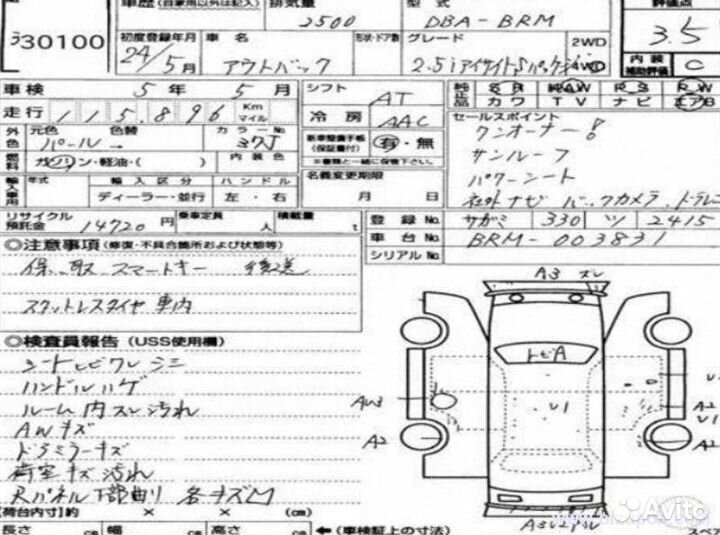 車歴 (自家用以外は記入) 排気量 型式 評価点
30100 2500 DBA-BRM 3.5
初度登録年月 車名 形状・ドア数 グレード 2WD 内装 補助評価 C
24/5月 アウトバック 2.5iアイサイトSパッケージ 4WD
車検 5年 5月 シフト AT 純正品 SR AW PS PW
走行 115,896 Km マイル 冷房 AAC カワ TV ナビ エアB
外色 元色 色替 カラーNo. 新車整備手帳(保証書付) 有・無 セールスポイント
パール → 37J ※書類と一緒に保管下さい。 ワンオーナー!
燃料 ガソリン・軽油・( ) 内装色 サンルーフ
輸入車用 年式 輸入区分 ハンドル 名義変更期限 パワーシート
ディーラー・並行 左・右 月 日 社外ナビ バックカメラ ドラレコ
リサイクル預託金 14720円 乗車定員 人 積載量 t 登録No. サガミ 330 ツ 2415
車台No. BRM-003831
シリアルNo.
◎注意事項 (修復・不具合箇所および状態等)
保、取、スマートキー 後送
スタットレスタイヤ車内
◎検査員報告 (USS使用欄)
シート
ハンドルハゲ
ルーム内スレ汚れ
AWキズ
ドラミラーキズ
荷室キズ汚れ
Rパネル下部曲り 各キズ凹
A3 スレ
トビA
U1
AU3
A2
A2
U1
A2
【荷台内寸】約 × × (cm)
長さ cm 幅 cm 高さ cm ←(車検証上の寸法) スペア
Avito